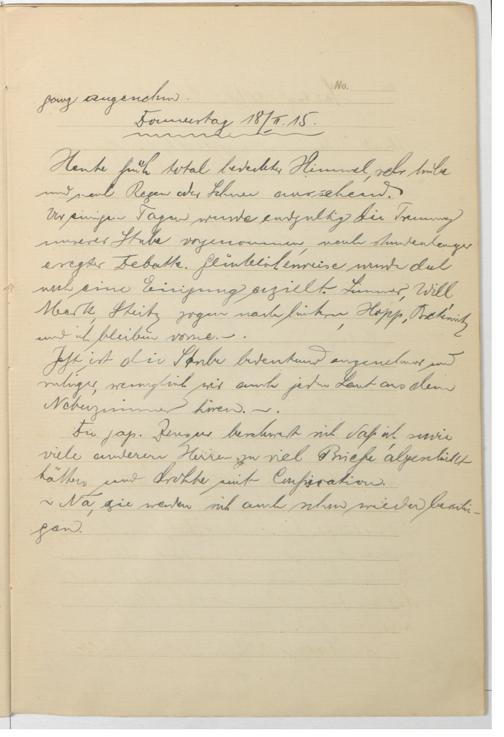 No.
ganz angenehm.
Donnerstag 18/II.15.
Heute früh total bedeckter Himmel, sehr trübe
und nach Regen oder Schnee aussehend.
Vor einigen Tagen wurde endgültig die Trennung
unserer Stube vorgenommen, nach stundenlanger
erregter Debatte. Glücklicherweise wurde doch
noch eine Einigung erzielt. Simmer, Will
Mark, Steitz zogen nach hinten, Hopp,
und ich bleiben vorne. –.
Jetzt ist die Stube bedeutend angenehmer und
ruhiger, wenngleich wir auch jeden Laut aus dem
Nebenzimmer hören. –.
Die jap. Zensur beschwert sich daß ich sowie
viele anderen Herren zu viel Briefe abgeschickt
hätten und drohte mit
~ Na, sie werden sich auch schon wieder beruhi-
gen.